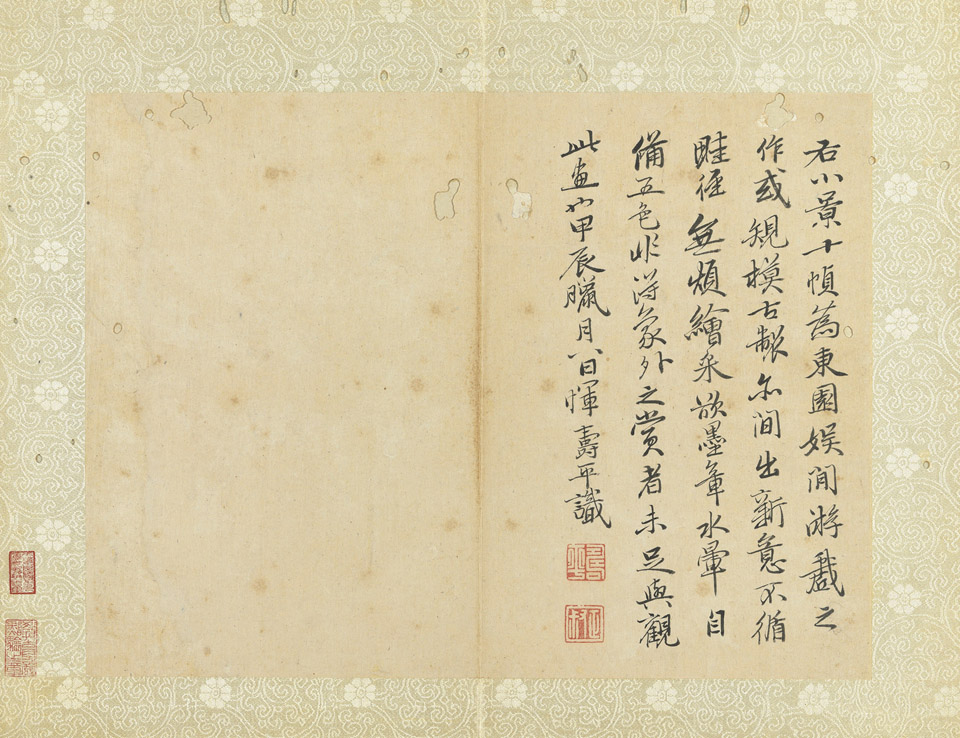 右小景十幀為東園娛閒游戲之
作或規模古製亦間出新意不循
畦徑無煩繪采欲墨章水暈自
備五色非得象外之賞者未足與觀
此畫也甲辰臘月八日惲壽平識